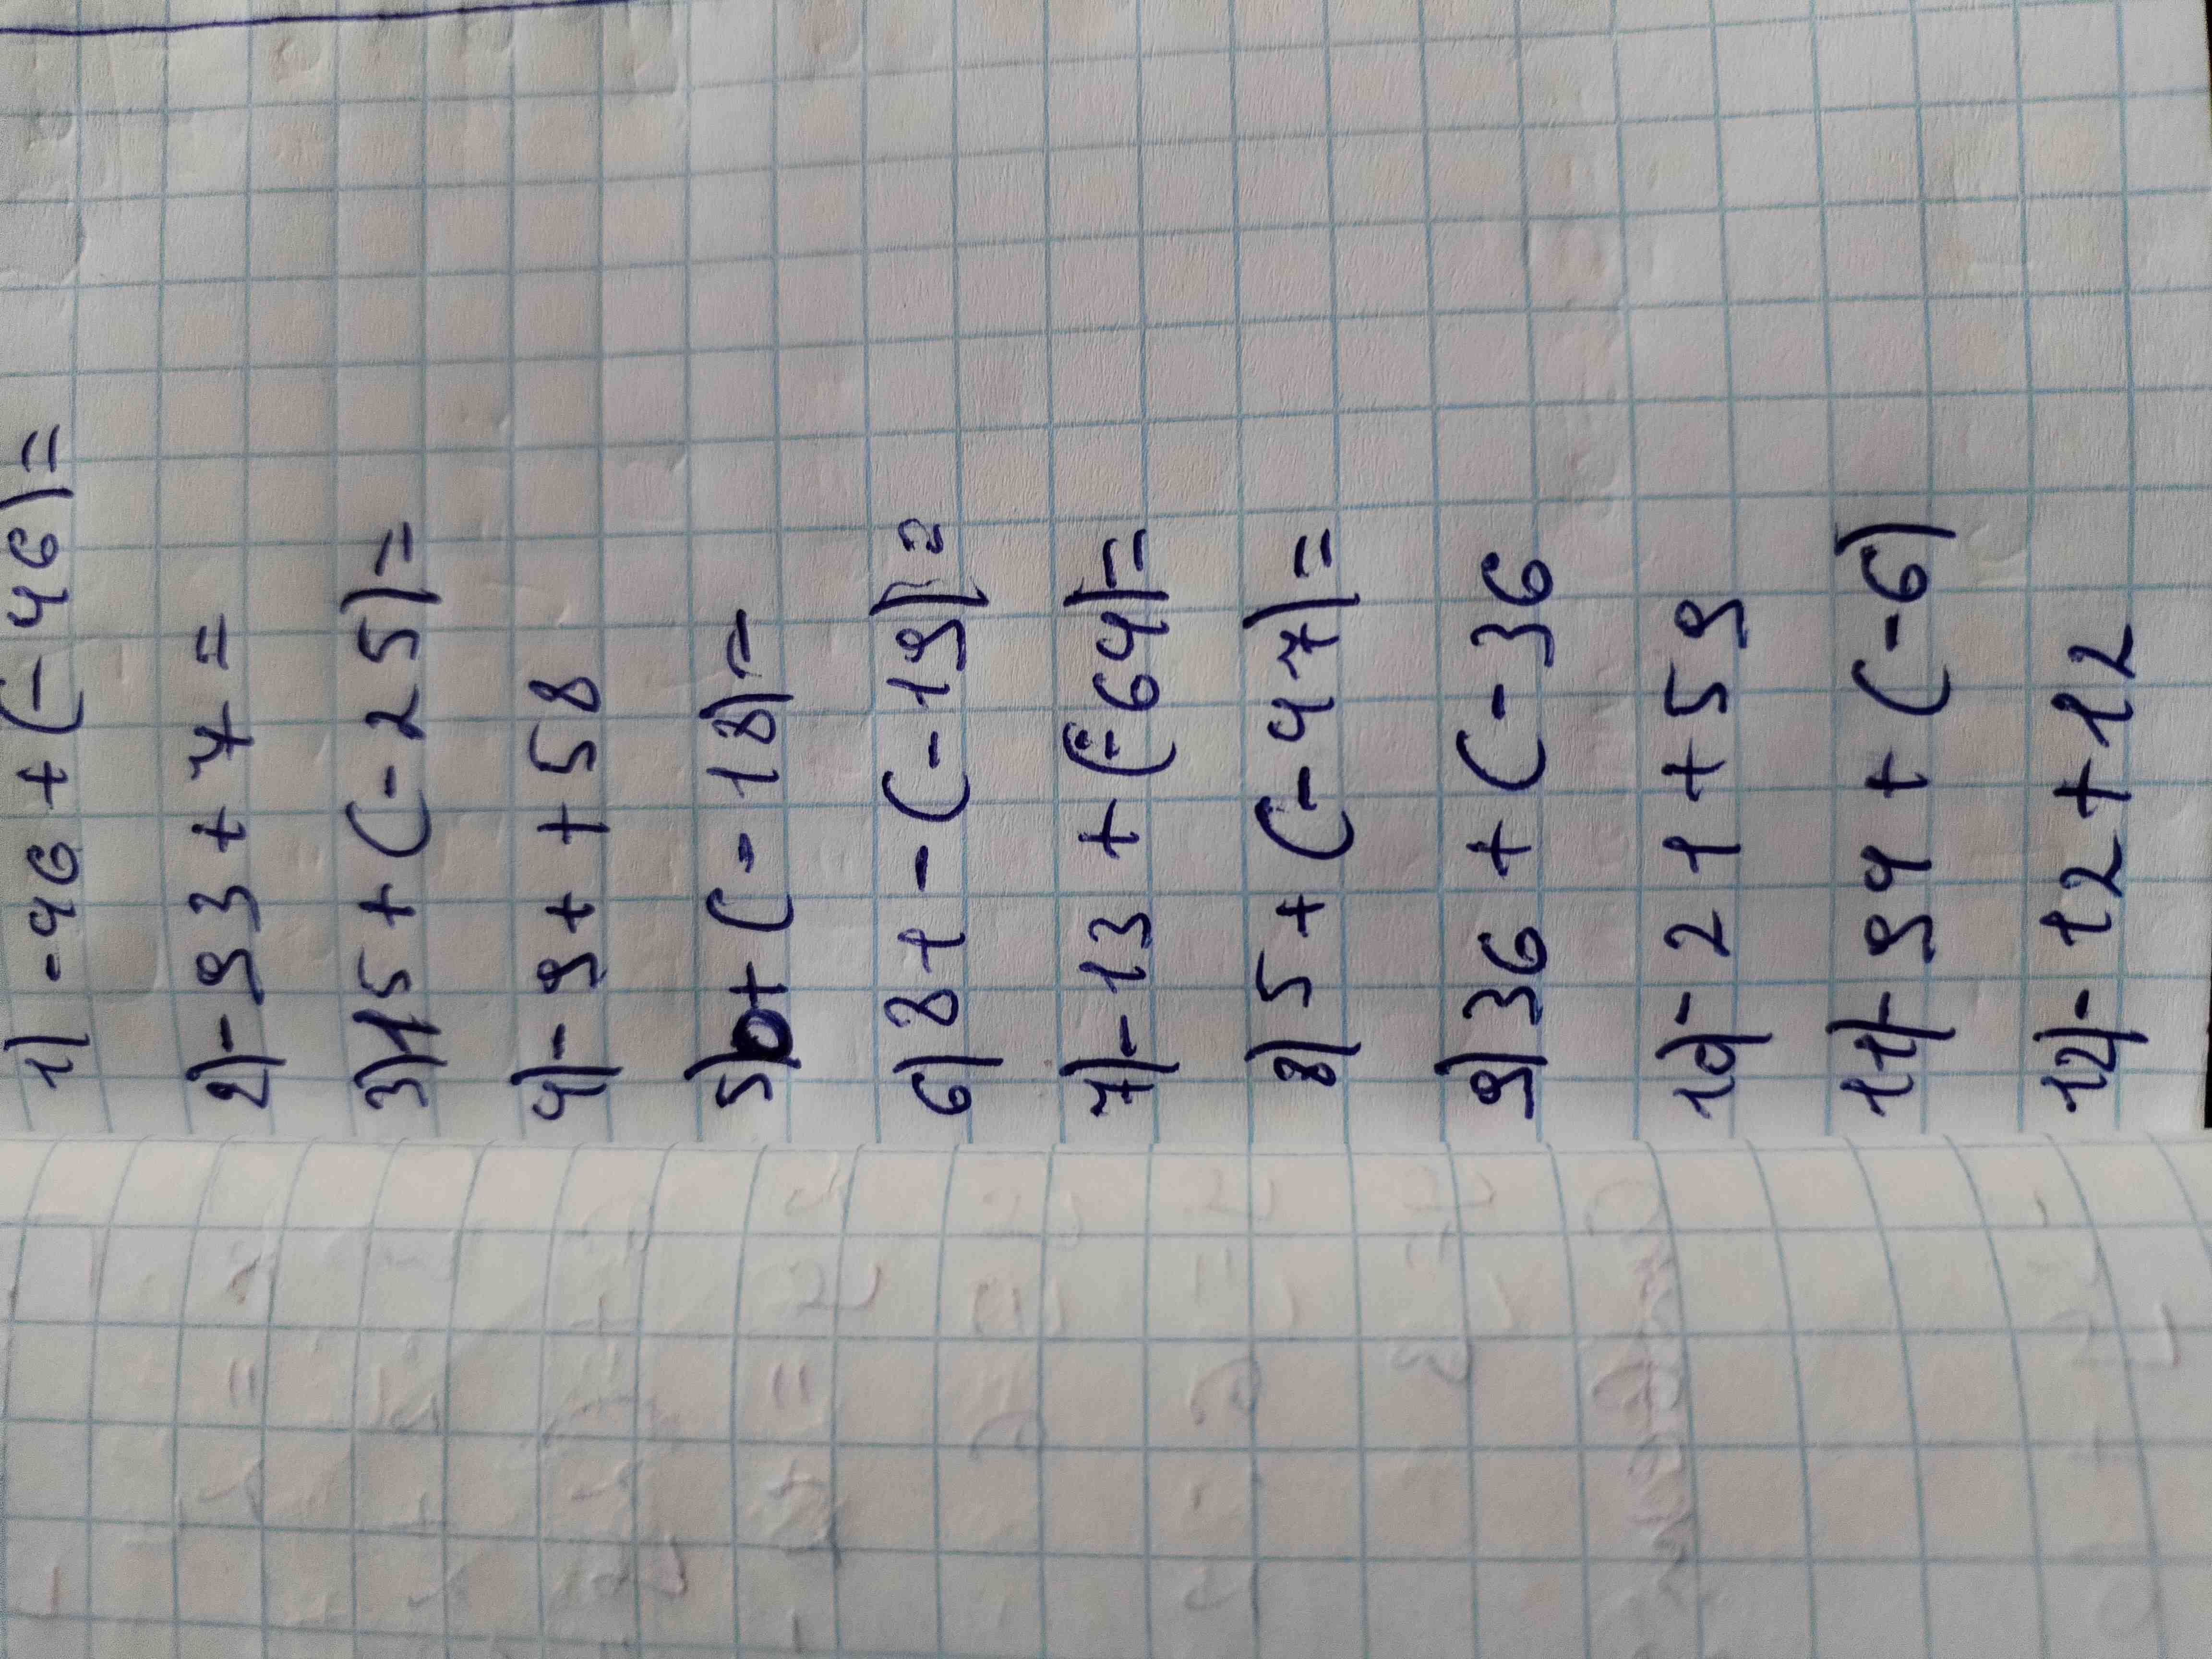 1) -46 + (-46) =
2) -93 + 7 =
3) 15 + (-25) =
4) -9 + + 58
5) 0 + (-18) =
6) 8 + - (-19) =
7) -13 + (-64) =
8) 5 + (-47) =
9) 36 + (-36
10) -21 + 59
11) -94 + (-6)
12) -12 + 12